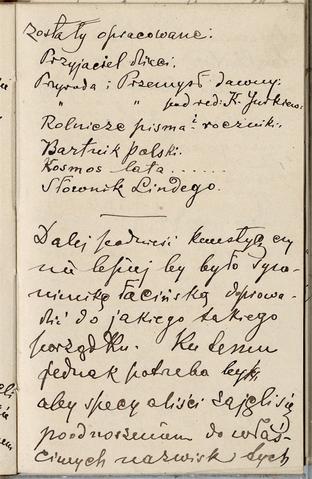 zostały opracowane:
Przyjaciel dzieci.
Przyroda i Przemysł dawny.
" " pod red: K. Jurkiew:
Rolnicze pisma i roczniki.
Bartnik Polski.
Kosmos lata......
Słownik Lindego.
Dalej podnieść kwestyę czy
nie lepiej by było syno-
nimikę łacińską doprowa-
dzić do jakiego takiego
porządku. Ku temu
jednak potrzeba było,
aby specyaliści zajęli się
podnoszeniem do właś-
ciwych nazwisk tych